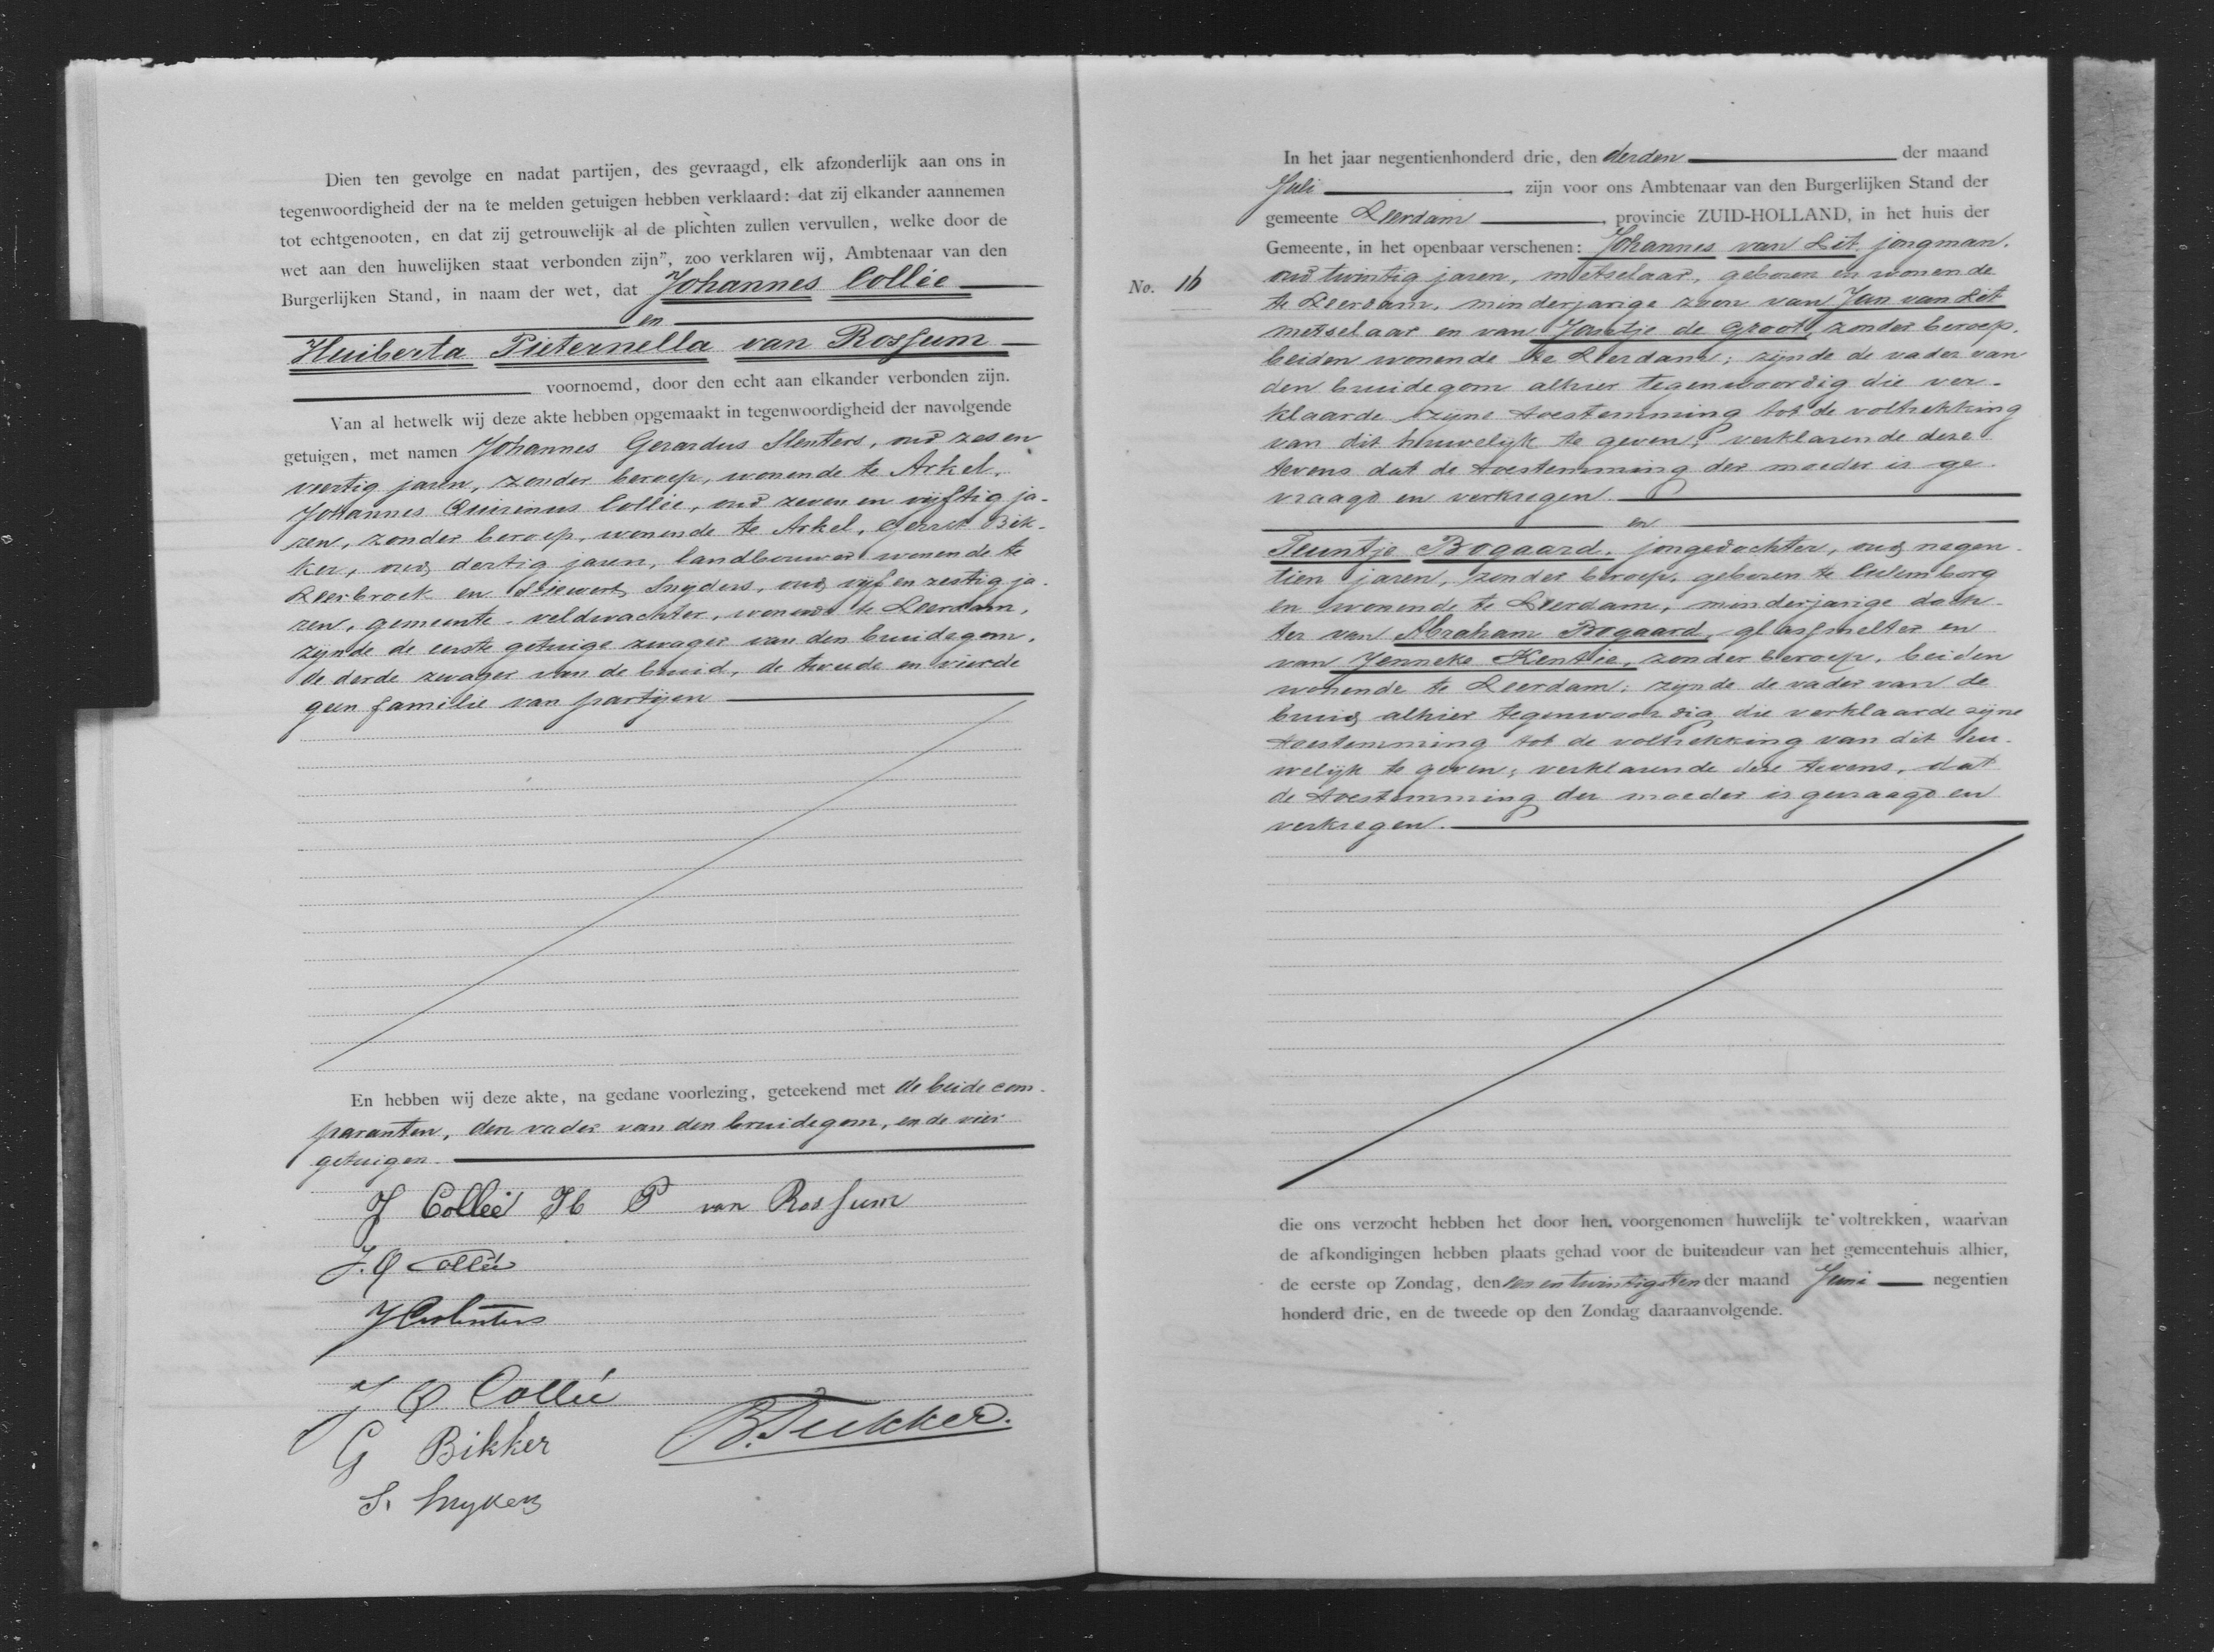 Dien ten gevolge en nadat partijen, des gevraagd, elk afzonderlijk aan ons in
tegenwoordigheid der na te melden getuigen hebben verklaard: dat zij elkander aannemen
tot echtgenooten, en dat zij getrouwelijk al de plichten zullen vervullen, welke door de
wet aan den huwelijken staat verbonden zijn”, zoo verklaren wij, Ambtenaar van den
Burgerlijken Stand, in naam der wet, dat Johannes Collée
en
Huiberta Pieternella van Rossum
voornoemd, door den echt aan elkander verbonden zijn.
Van al hetwelk wij deze akte hebben opgemaakt in tegenwoordigheid der navolgende
getuigen, met namen Johannes Gerardus Slenters, oud zes en
veertig jaren, zonder beroep, wonende te Arkel,
Johannes Quirinus Collée, oud zeven en vijftig ja-
ren, zonder beroep, wonende te Arkel, Gerrit Bik-
ker, oud dertig jaren, landbouwer wonende te
Leerbroek en Siewert Snyders, oud vijf en zestig ja-
ren, gemeente-veldwachter, wonende te Leerdam,
zijnde de eerste getuige zwager van den bruidegom,
de derde zwager van de bruid, de tweede en vierde
geen familie van partijen
En hebben wij deze akte, na gedane voorlezing, geteekend met de beide com-
paranten, den vader van den bruidegom, en de vier
getuigen.
J Collée H P van Rossum
J. Q Collée
J Q Collée
G Bikker
B. Tukker.
S. Snyders
In het jaar negentienhonderd drie, den derden der maand
Juli, zijn voor ons Ambtenaar van den Burgerlijken Stand der
gemeente Leerdam, provincie ZUID-HOLLAND, in het huis der
Gemeente, in het openbaar verschenen: Johannes van Lit, jongman,
No. 16
oud twintig jaren, metselaar, geboren en wonende
te Leerdam, minderjarige zoon van Jan van Lit
metselaar en van Jantje de Groot, zonder beroep,
beiden wonende te Leerdam; zijnde de vader van
den bruidegom alhier tegenwoordig die ver-
klaarde zijne toestemming tot de voltrekking
van dit huwelijk te geven; verklarende deze
tevens dat de toestemming der moeder is ge-
vraagd en verkregen
en
Teuntje Bogaard, jongedochter, oud negen-
tien jaren, zonder beroep, geboren te Culemborg
en wonende te Leerdam, minderjarige doch-
ter van Abraham Bogaard, glassmelter en
van Jenneke Kentie, zonder beroep, beiden
wonende te Leerdam; zijnde de vader van de
bruid alhier tegenwoordig die verklaarde zijne
toestemming tot de voltrekking van dit hu-
welijk te geven; verklarende deze tevens, dat
de toestemming der moeder is gevraagd en
verkregen.
die ons verzocht hebben het door hen voorgenomen huwelijk te voltrekken, waarvan
de afkondigingen hebben plaats gehad voor de buitendeur van het gemeentehuis alhier,
de eerste op Zondag, den een en twintigsten der maand Juni negentien
honderd drie, en de tweede op den Zondag daaraanvolgende.